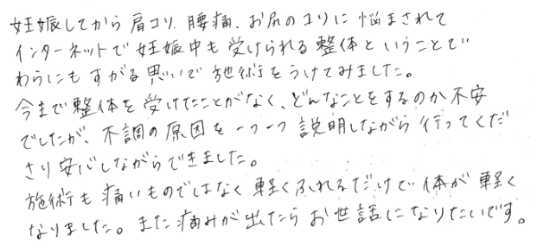 妊娠してから肩コリ、腰痛、お尻のコリに悩まされて
インターネットで妊娠中も受けられる整体ということで
わらにもすがる思いで施術をうけてみました。
今まで整体を受けたことがなく、どんなことをするのか不安
でしたが、不調の原因を一つ一つ説明しながら行ってくだ
さり安心しながらできました。
施術も痛いものではなく軽くふれるだけで体が軽く
なりました。また痛みが出たらお世話になりたいです。